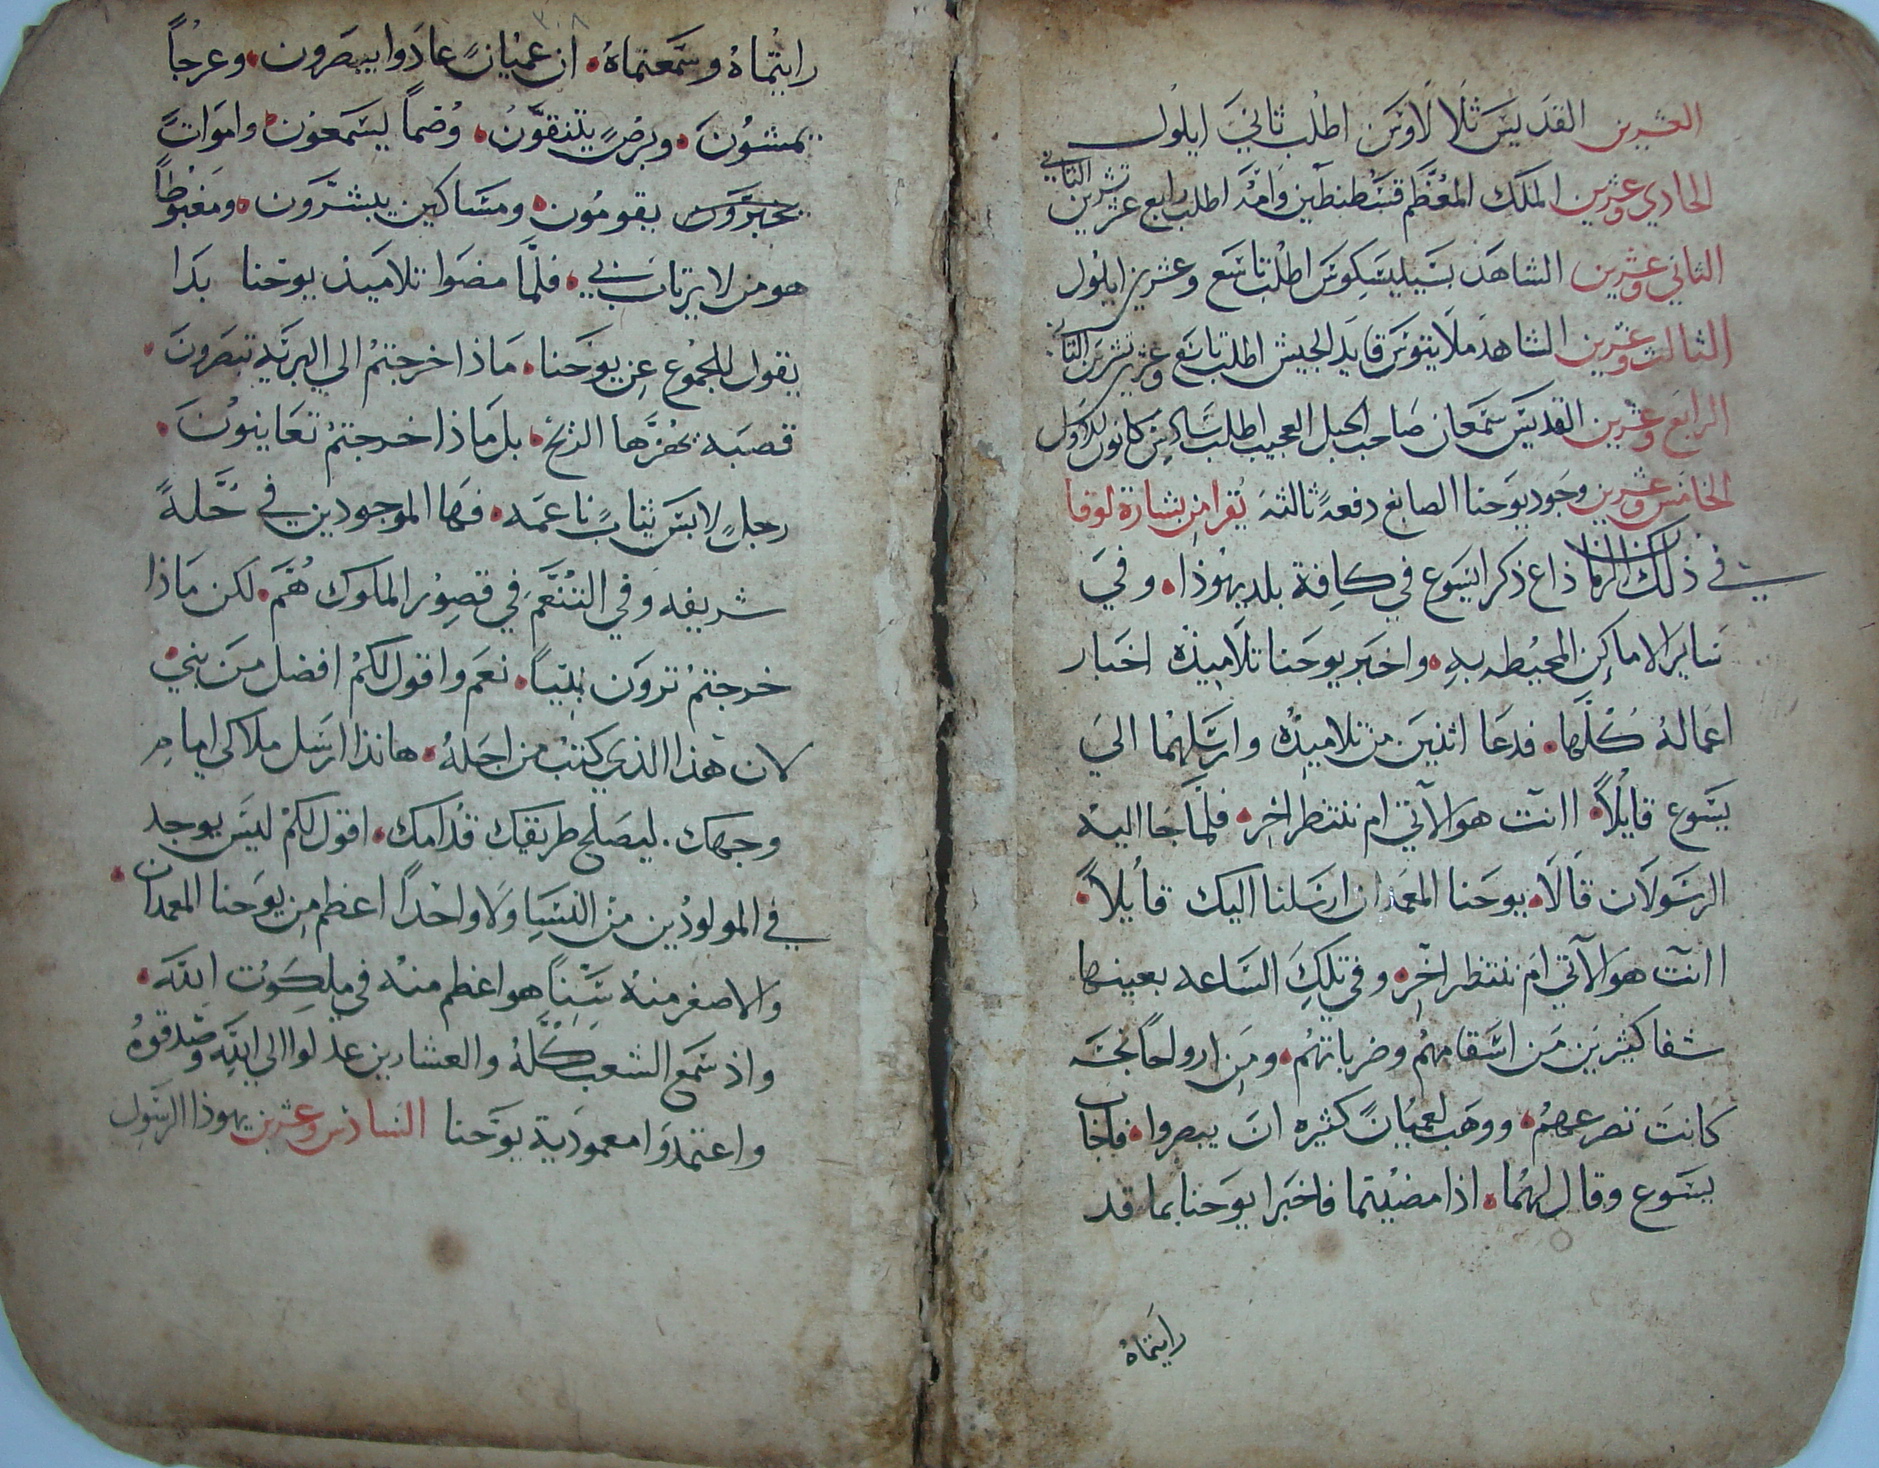 العشرين القديس ثلالاوس اطلب ثاني ايلول
الحادي وعشرين الملك المعظم قسطنطين وامه اطلب رابع عشر تشرين الثاني
الثاني وعشرين الشاهد بسيليسكوس اطلب تاسع وعشرين ايلول
الثالث وعشرين الشاهد ملاتيوس قايد الجيش اطلب تاسع وعشرين تشرين
الرابع وعشرين القديس سمعان صاحب الجبل العجيب اطلب سادس كانون الاول
الخامس وعشرين وجود يوحنا الصابغ دفعةً ثالثه يُقرا من بشارة لوقا
في ذلك الزمان ذاع ذكر ايسوع في كافة بلد يهوذا، وفي
ساير الاماكن المحيطه به، واخبر يوحنا تلاميذه اخبار
اعماله كلّها، فدعا اثنين من تلاميذه وارسلهما الي
يسوع قايلاً، اانت هو الآتي ام ننتظر اخر، فلمّا جا اليه
الرسولان قالا، يوحنا المعمدان ارسلنا اليك قايلاً،
اانت هو الآتي ام ننتظر اخر، وفي تلك الساعه بعينها
شفا كثيرين من اسقامهم وضرباتهم، ومن ارواحاً نجسه
كانت تصرعهم، ووهب لعميانً كثيره ان يبصروا، فاجاب
يسوع وقال لهما، اذا مضيتما فاخبرا يوحنا بما قد
رايتماه
٣٠٨
رايتماه وسمعتماه، ان عميانً عادوا يبصرون، وعرجاً
يمشون، وبرصٍ يتنقّون، وصُماً يسمعون، وامواتً
يقومون، ومساكين يبشّرون، ومغبوطاً
هو من لا يرتاب بي، فلمّا مضوا تلاميذ يوحنا بدا
يقول للجموع عن يوحنا، ماذا خرجتم الي البريّه تبصرون،
قصبه تهزّها الريح، بل ماذا خرجتم تعاينون،
رجلٍ لابس ثيابٍ ناعمه، فها الموجودين في حُلّةً
شريفه وفي التنعّم في قصور الملوك هُم، لكن ماذا
خرجتم ترون نبيّاً، نعم واقول لكم افضل من نبي،
لان هذا الذي كتب من اجله، هانذا ارسل ملاكي امام
وجهك. ليصلح طريقك قدّامك، اقول لكم ليس يوجد
في المولودين من النسا ولا واحداً اعظم من يوحنا المعمدان،
والاصغر منه سِنّاً هو اعظم منه في ملكوت الله،
واذ سمع الشعب كلّه والعشارين عدلوا الي الله وصدقوه
واعتمدوا معمودية يوحنا السادس وعشرين يهوذا الرسول